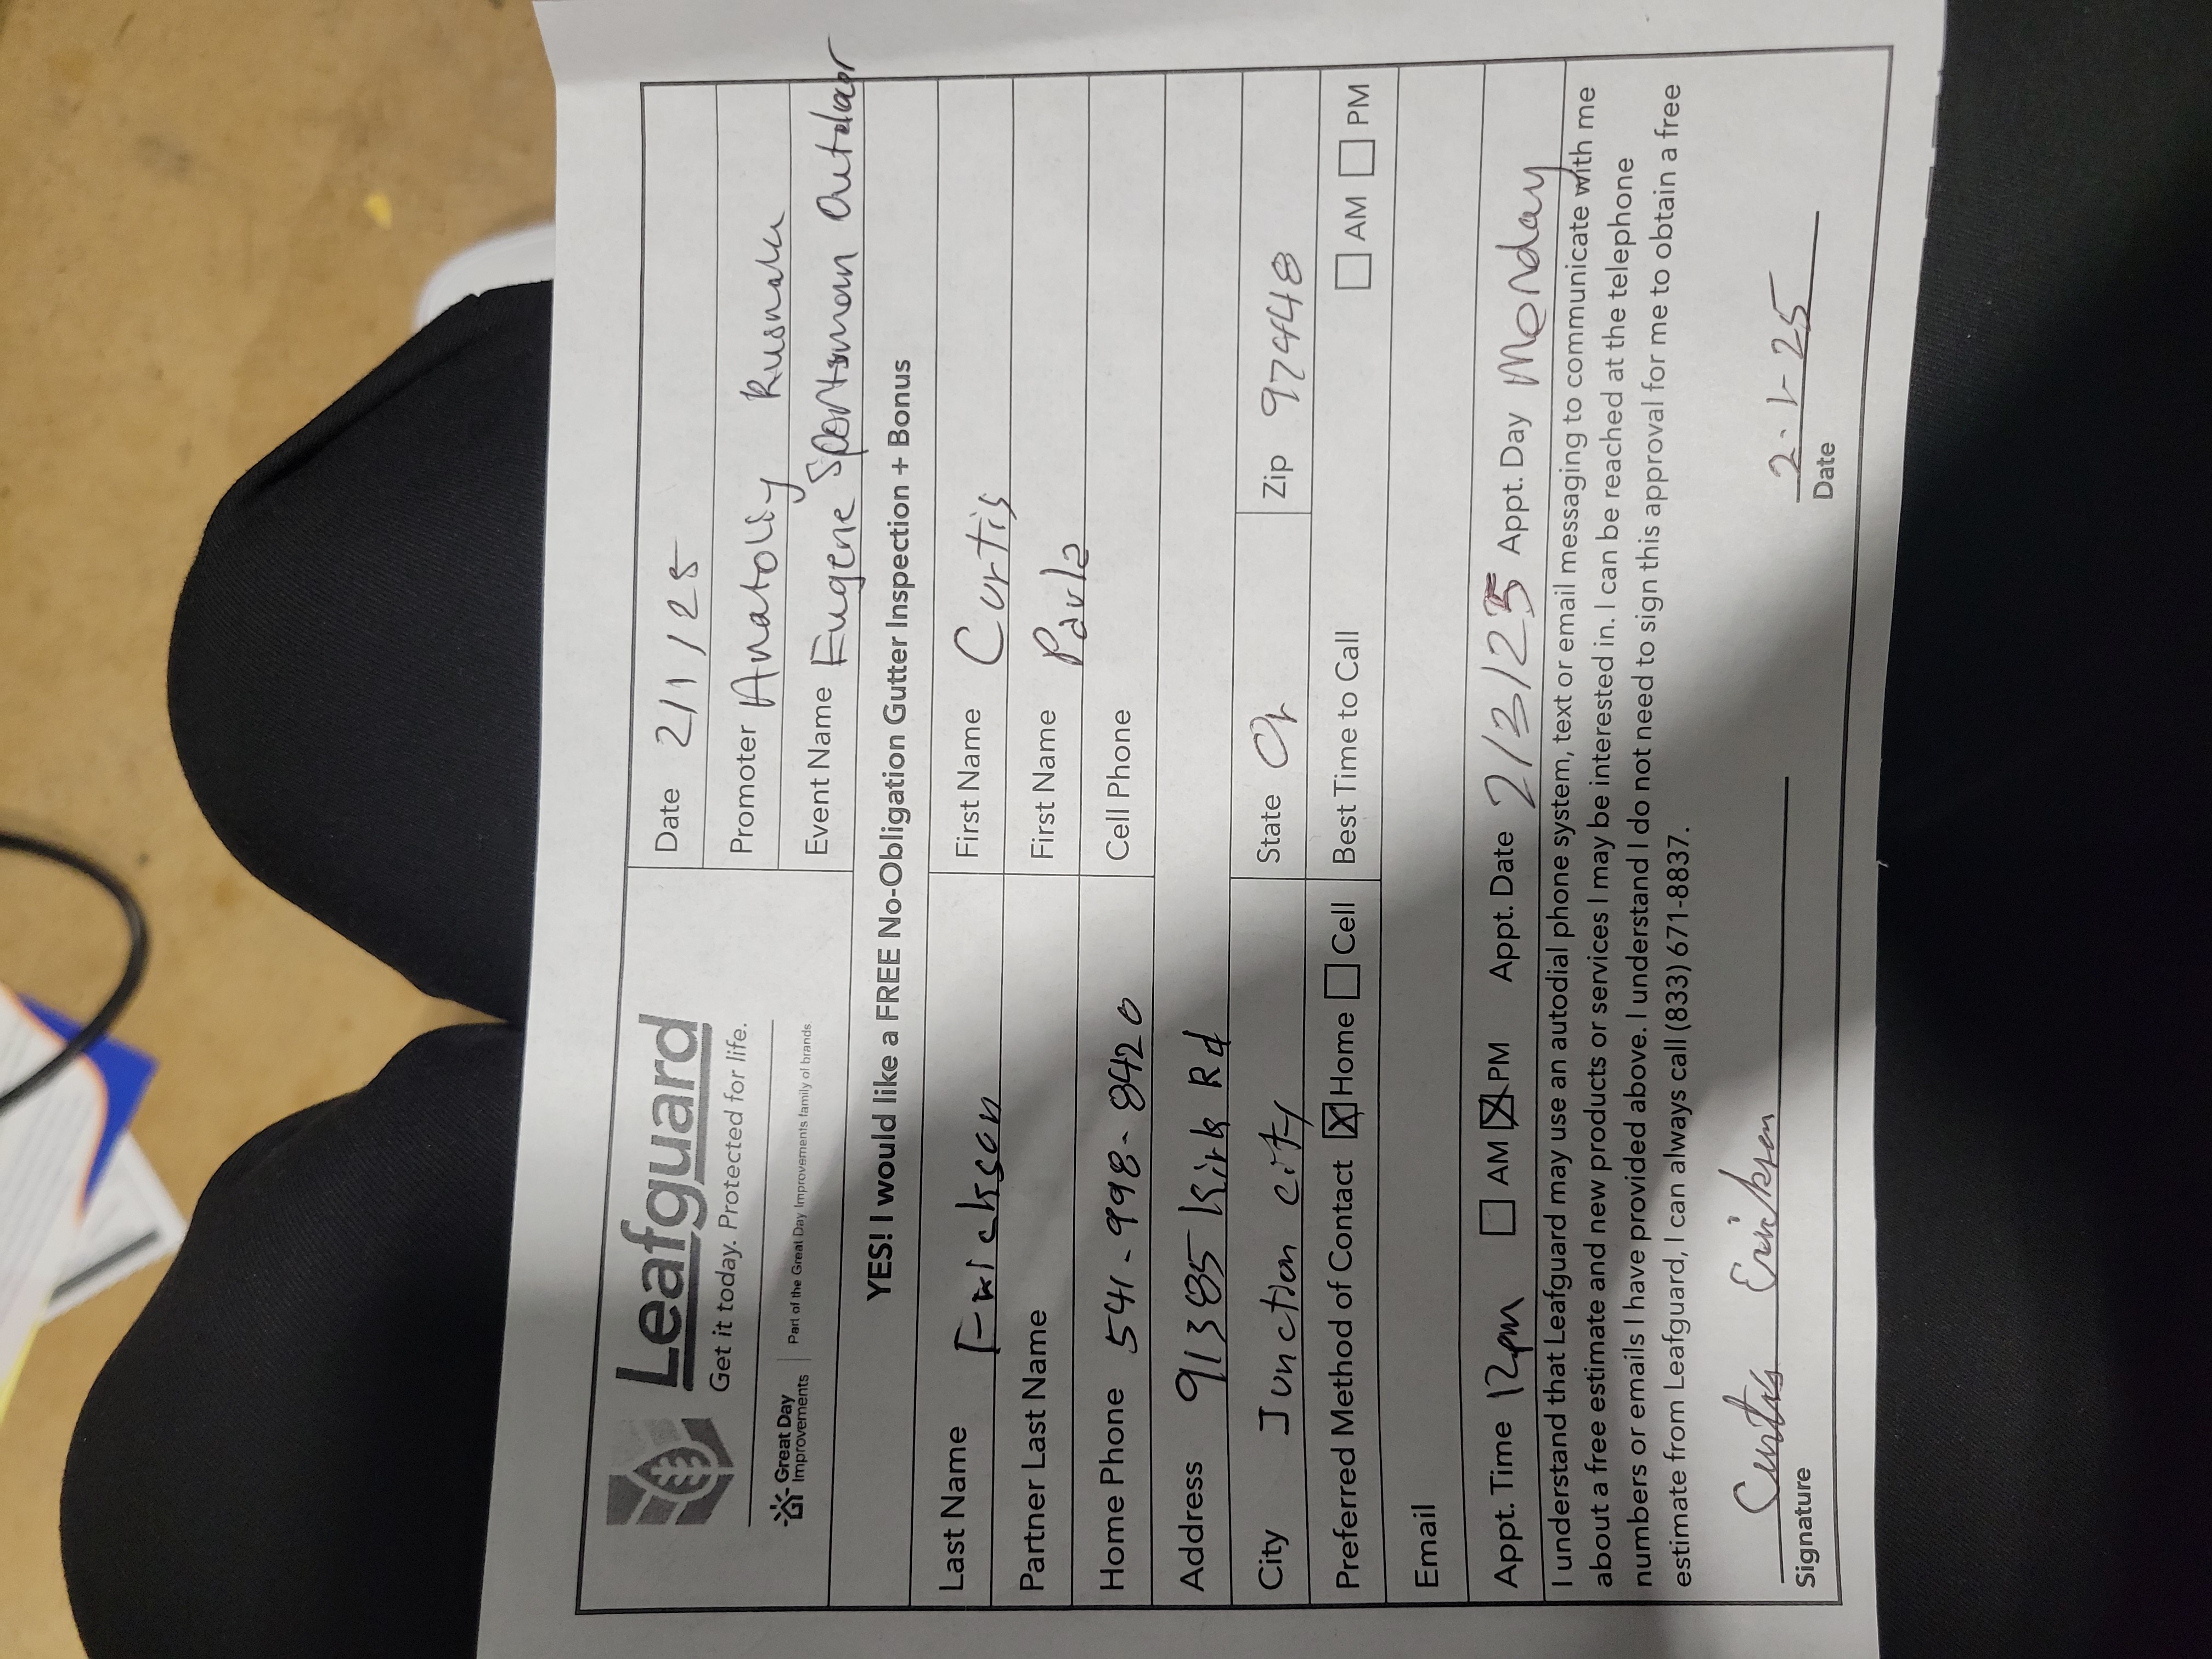 Leafguard
Get it today. Protected for life.
Great Day Improvements
Part of the Great Day Improvements family of brands.
Date 2/1/25
Promoter Anatoliy Rusnak
Event Name Eugene Sportsman Outdoor
YES! I would like a FREE No-Obligation Gutter Inspection + Bonus
Last Name Erickson First Name Curtis
Partner Last Name First Name Paula
Home Phone 541-998-8420 Cell Phone
Address 91385 Kirk Rd
City Junction city State Or Zip 97448
Preferred Method of Contact X Home Cell Best Time to Call AM PM
Email
Appt. Time 12pm AM X PM Appt. Date 2/3/25 Appt. Day Monday
I understand that Leafguard may use an autodial phone system, text or email messaging to communicate with me
about a free estimate and new products or services I may be interested in. I can be reached at the telephone
numbers or emails I have provided above. I understand I do not need to sign this approval for me to obtain a free
estimate from Leafguard, I can always call (833) 671-8837.
Curtis Erickson 2-1-25
Signature Date